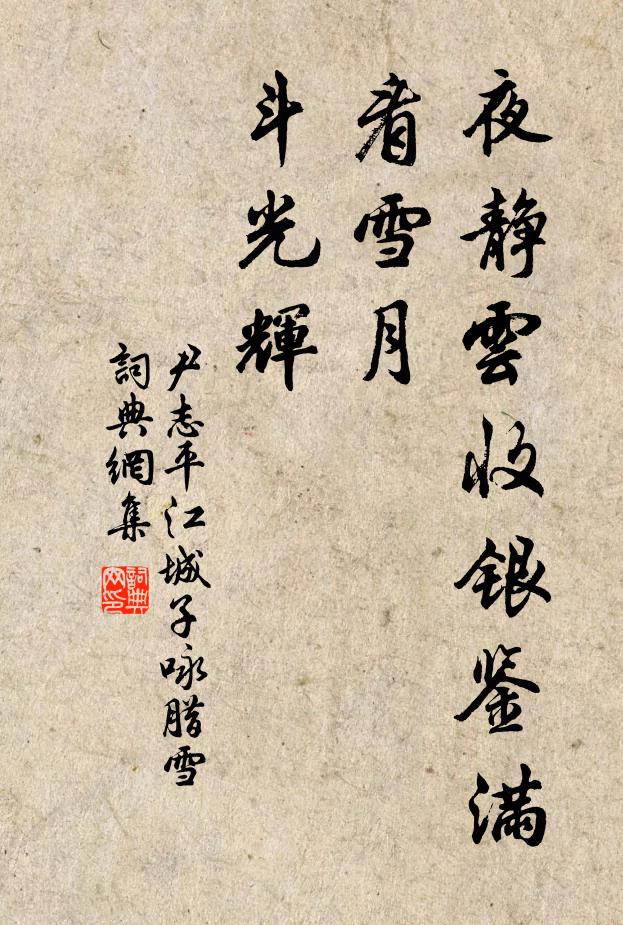 夜靜雲收銀鉴滿
看雪月
斗光輝
尹志平江城子咏腊雪
詞典網集
詞典网印